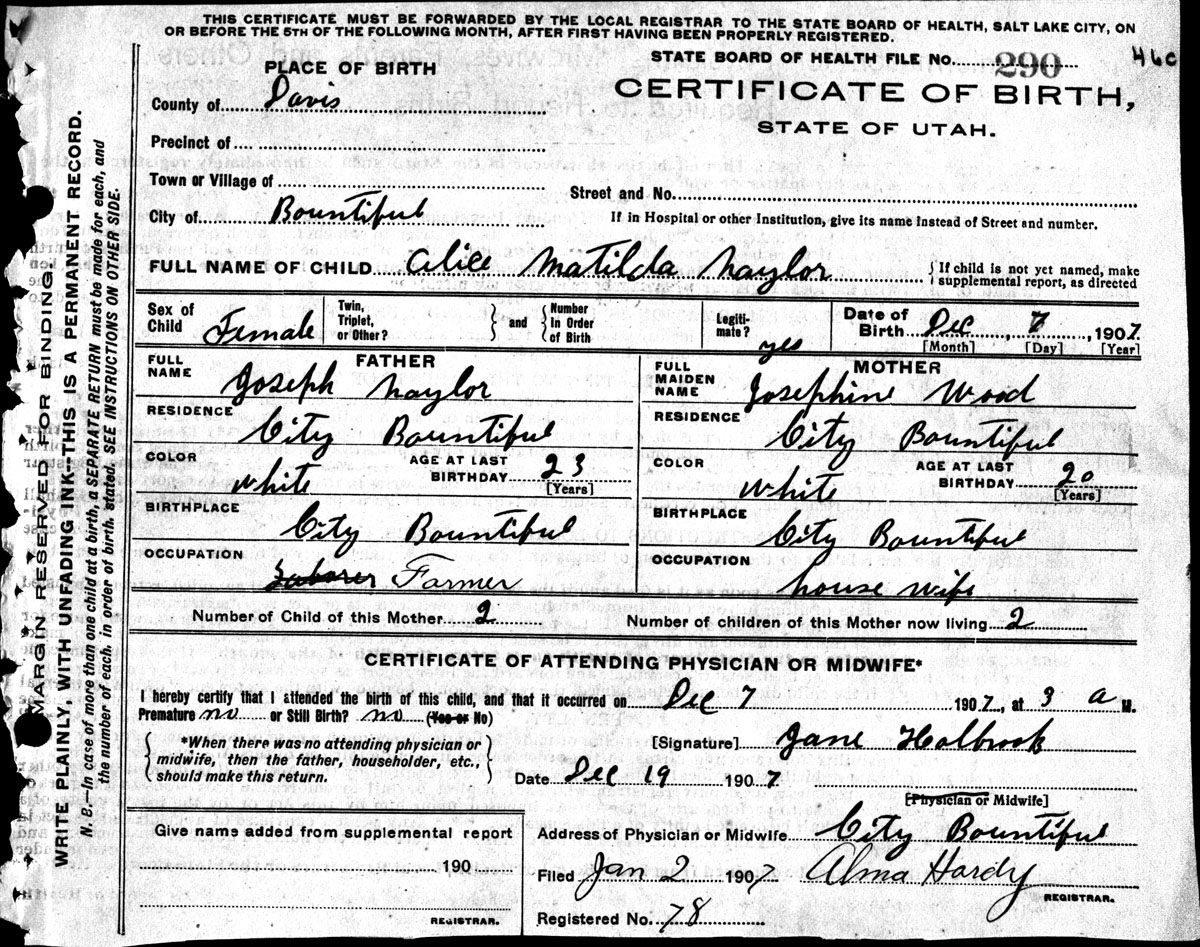 THIS CERTIFICATE MUST BE FORWARDED BY THE LOCAL REGISTRAR TO THE STATE BOARD OF HEALTH, SALT LAKE CITY, ON
OR BEFORE THE 5TH OF THE FOLLOWING MONTH, AFTER FIRST HAVING BEEN PROPERLY REGISTERED.
STATE BOARD OF HEALTH FILE No. 290
46c
PLACE OF BIRTH
CERTIFICATE OF BIRTH,
STATE OF UTAH.
County of Davis
Precinct of
Town or Village of
Street and No.
City of Bountiful
If in Hospital or other Institution, give its name instead of Street and number.
FULL NAME OF CHILD Alice Matilda Naylor
If child is not yet named, make
supplemental report, as directed
Sex of Child Female
Twin, Triplet, or Other?
and
Number In Order of Birth
Legiti-mate? yes
Date of Birth Dec 7, 1907.
[Month] [Day] [Year]
FATHER
FULL NAME Joseph Naylor
RESIDENCE City Bountiful
COLOR white AGE AT LAST BIRTHDAY 23
[Years]
BIRTHPLACE City Bountiful
OCCUPATION Laborer Farmer
MOTHER
FULL MAIDEN NAME Josephine Wood
RESIDENCE City Bountiful
COLOR white AGE AT LAST BIRTHDAY 20
[Years]
BIRTHPLACE City Bountiful
OCCUPATION house wife
Number of Child of this Mother 2
Number of children of this Mother now living 2
CERTIFICATE OF ATTENDING PHYSICIAN OR MIDWIFE*
I hereby certify that I attended the birth of this child, and that it occurred on Dec 7 1907, at 3 a M.
Premature no or Still Birth? no (Yes or No)
*When there was no attending physician or
midwife, then the father, householder, etc.,
should make this return.
[Signature] Jane Holbrook
Date Dec 19 1907
[Physician or Midwife]
Give name added from supplemental report
190
REGISTRAR.
Address of Physician or Midwife City Bountiful
Filed Jan 2 1907 Alma Hardy
REGISTRAR.
Registered No. 78
MARGIN RESERVED FOR BINDING.
WRITE PLAINLY, WITH UNFADING INK--THIS IS A PERMANENT RECORD.
N. B.—In case of more than one child at a birth, a SEPARATE RETURN must be made for each, and
the number of each, in order of birth, stated. SEE INSTRUCTIONS ON OTHER SIDE.